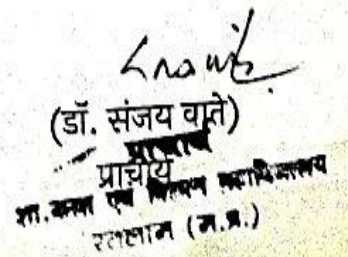 (डॉ. संजय वाते)
प्राचार्य
प्राचार्य
शा. कला एवं विज्ञान महाविद्यालय
रतलाम (म.प्र.)